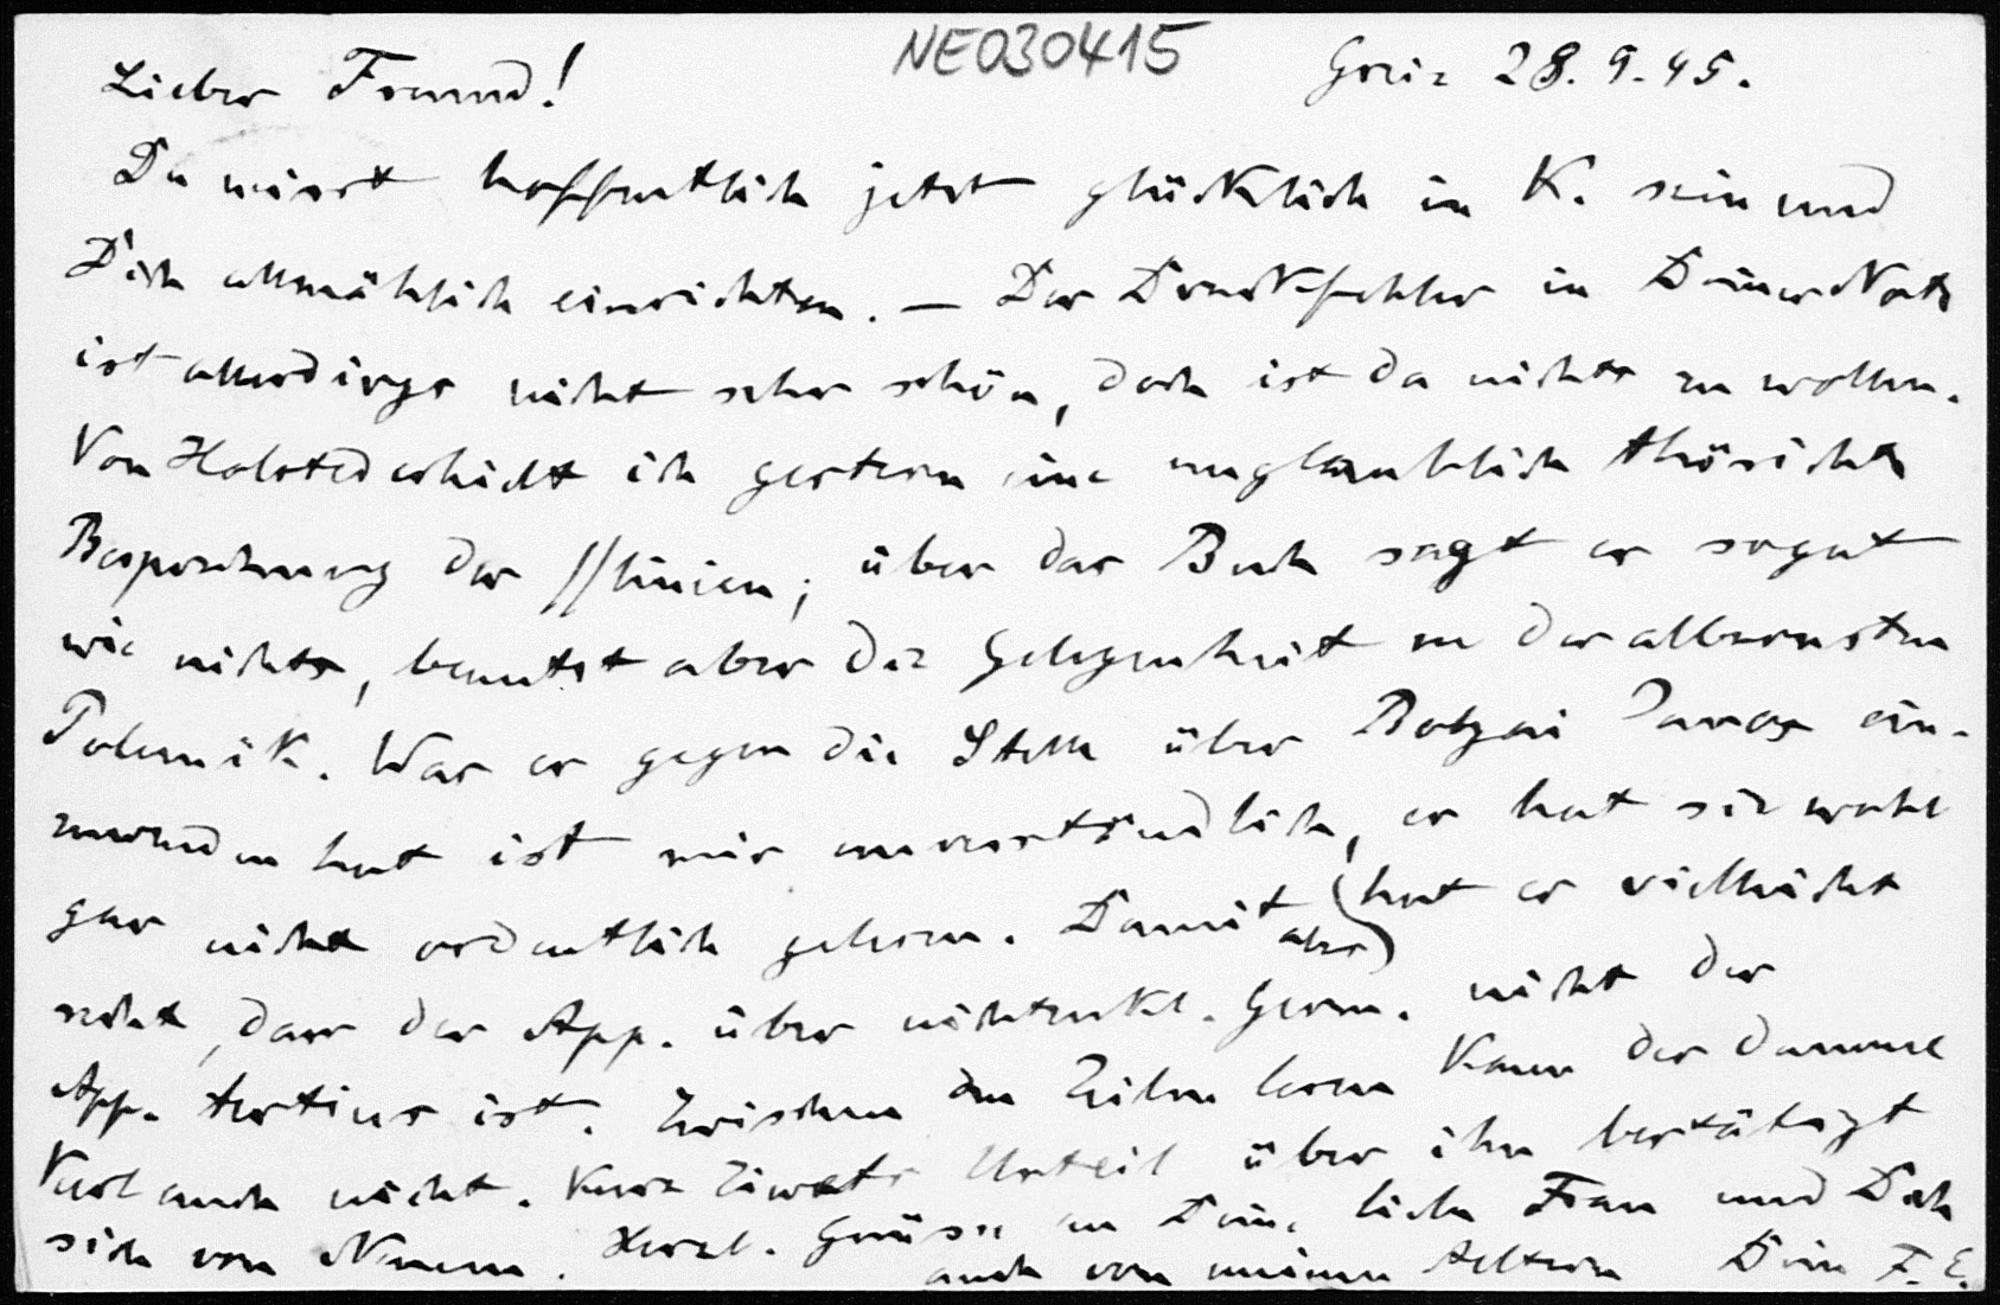 NE030415
Lieber Freund! Greiz 28. 9. 95.
Du wirst hoffentlich jetzt glücklich in K. sein und
Dich allmählich einrichten. — Der Druckfehler in Deiner Note
ist allerdings nicht sehr schön, doch ist da nichts zu wollen.
Von Halsted erhielt ich gestern eine unglaublich thörichte
Besprechung der //linien; über das Buch sagt er so gut
wie nichts, benutzt aber die Gelegenheit zu der albernsten
Polemik. Was er gegen die Stelle über Bolyai ein-
zuwenden hat ist mir unverständlich, er hat sie wohl
gar nicht ordentlich gelesen. Damit (hat er vielleicht
aber)
recht, dass der App. über nichteukl. Geom. nicht der
App. tertius ist. Zwischen den Zeilen lesen kann der dumme
Kerl auch nicht. Kurz Ziwets Urteil über ihn bestätigt
sich von Neuem. Herzl. Grüsse an Deine liebe Frau und Dich
auch von meinen Aeltern Dein F. E.